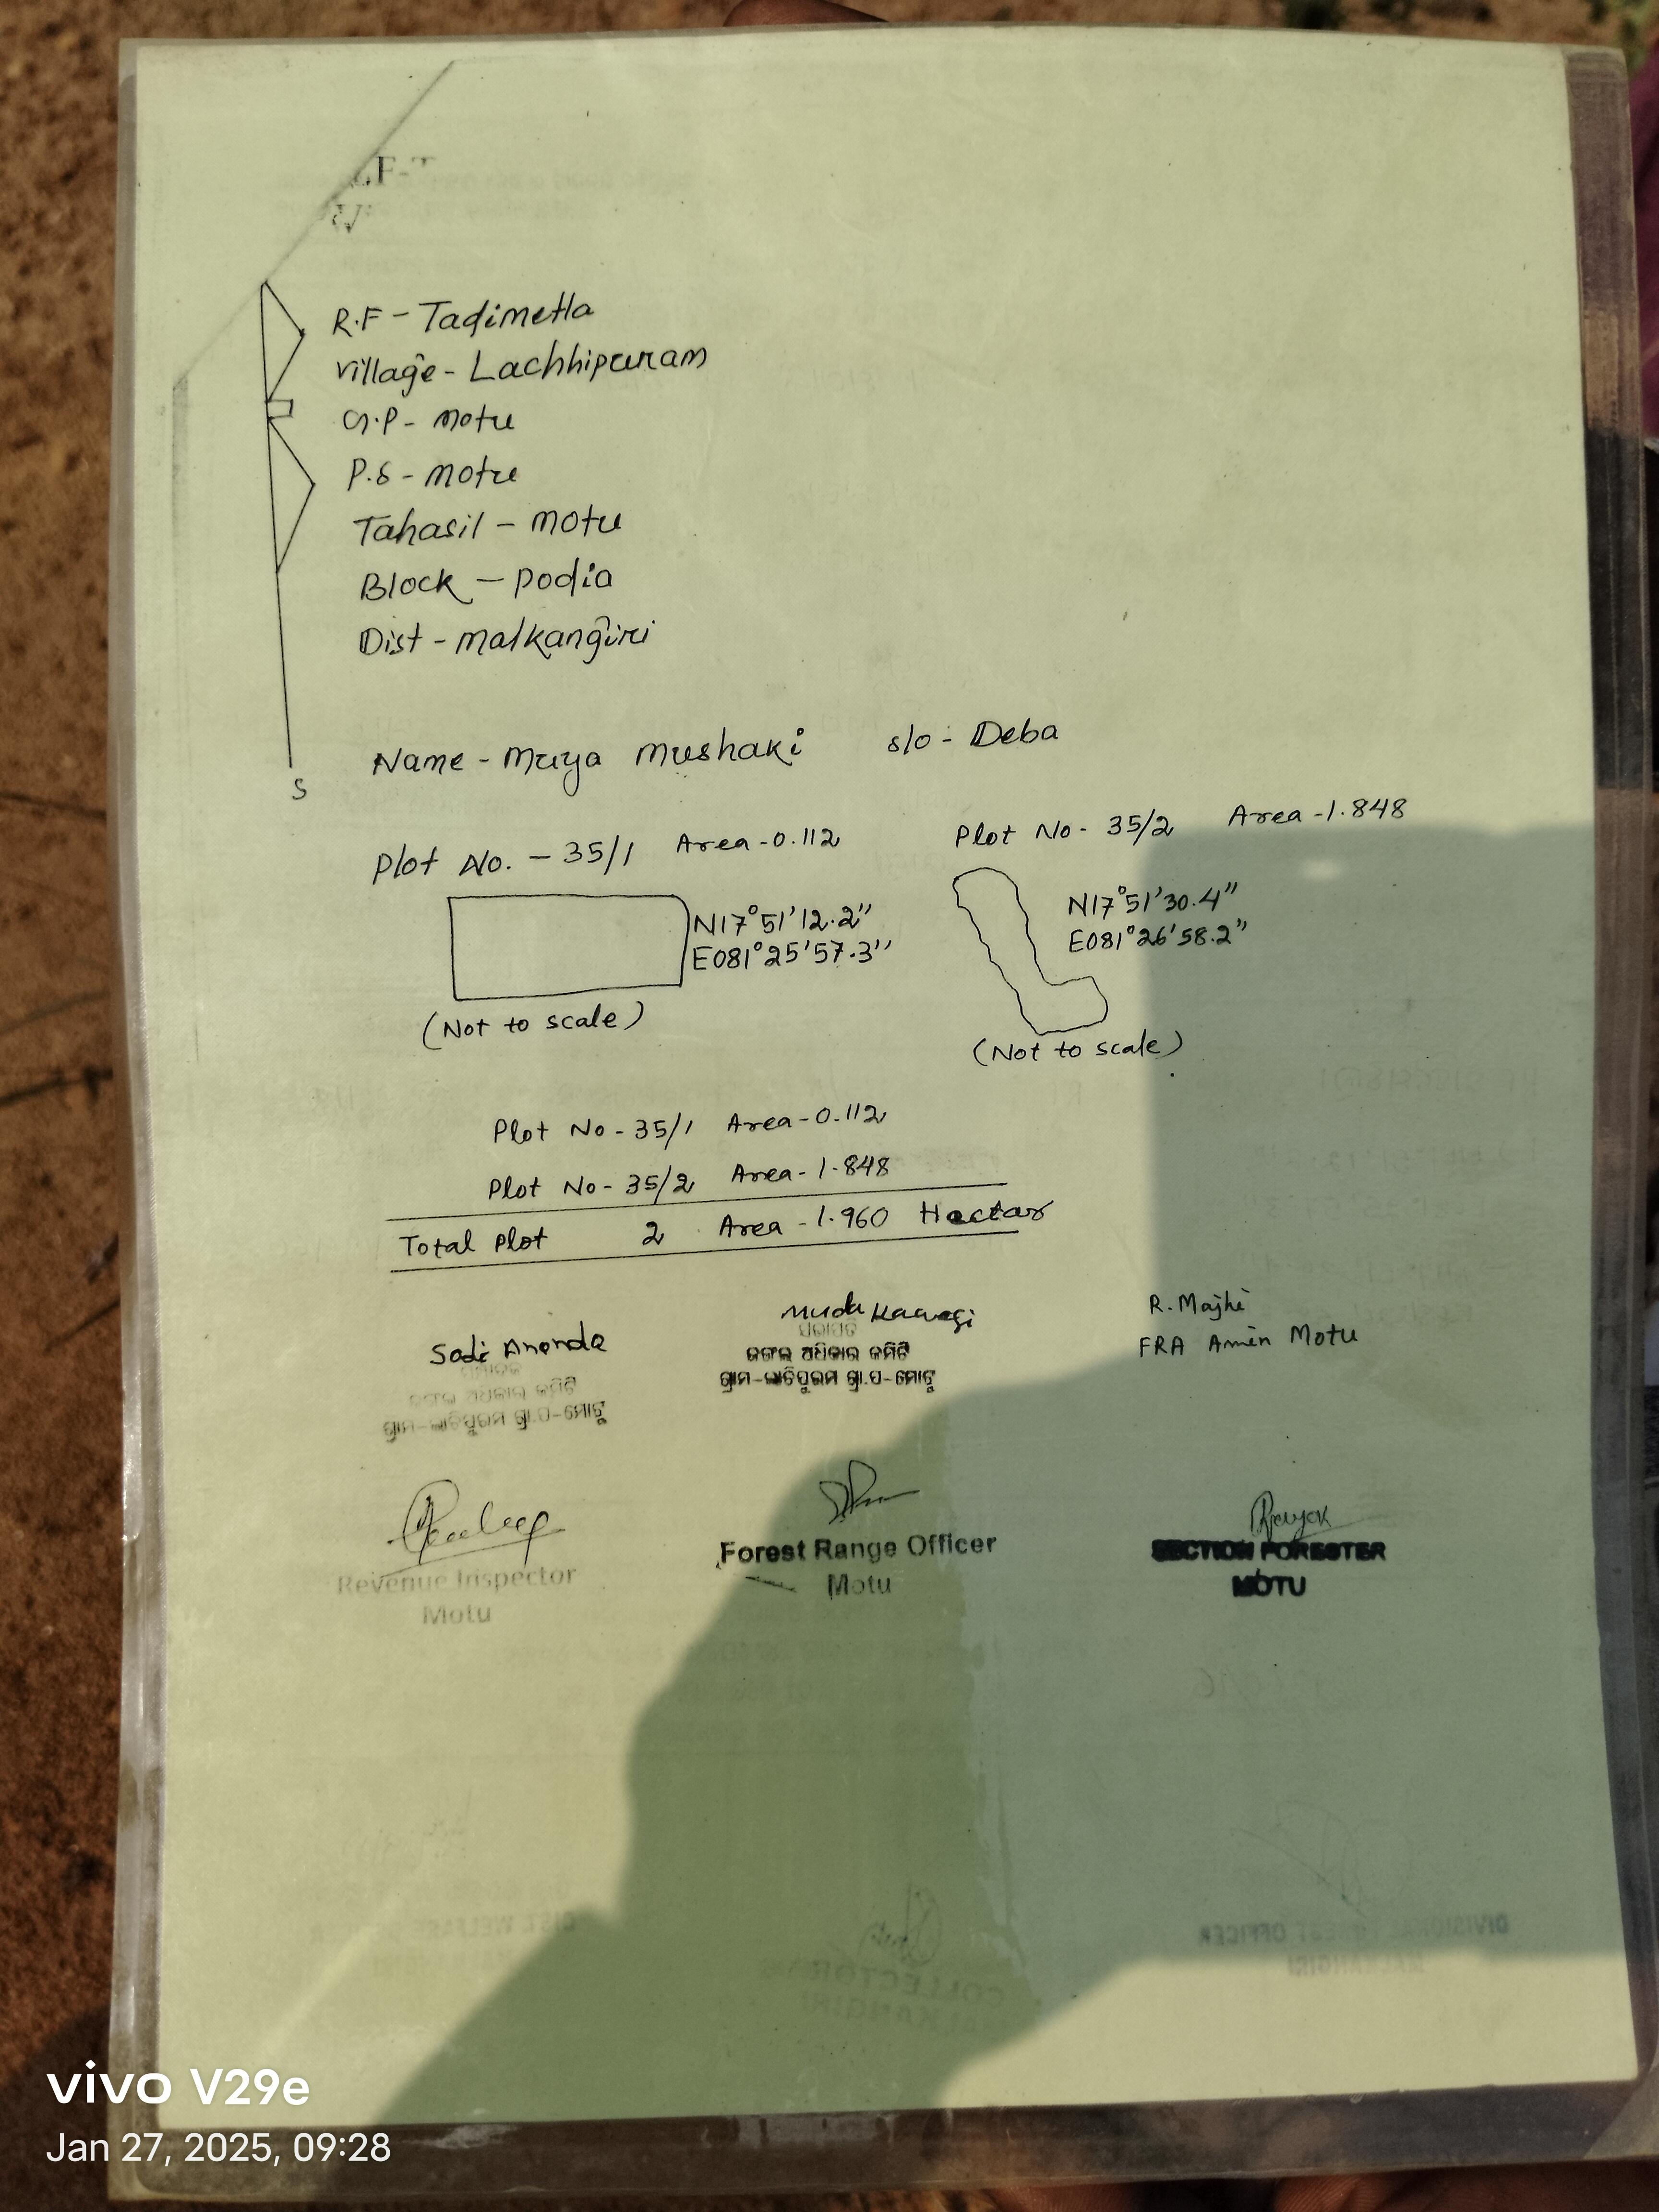 R.F - Tadimetla
village - Lachhipuram
G.P - Motu
P.S - Motu
Tahasil - Motu
Block - Podia
Dist - Malkangiri
S
Name - Muya Mushaki s/o - Deba
Plot No. - 35/1 Area - 0.112
Plot No - 35/2 Area - 1.848
N17°51'12.2"
E081°25'57.3"
N17°51'30.4"
E081°26'58.2"
(Not to scale)
(Not to scale)
Plot No - 35/1 Area - 0.112
Plot No - 35/2 Area - 1.848
Total Plot 2 Area - 1.960 Hectar
Sadi Ananda
ଜଙ୍ଗଲ ଅଧିକାର କମିଟି
ଗ୍ରାମ-ଲାଚିପୁରମ ଗ୍ରା.ପ-ମୋଟୁ
Muda
ଜଙ୍ଗଲ ଅଧିକାର କମିଟି
ଗ୍ରାମ-ଲାଚିପୁରମ ଗ୍ରା.ପ-ମୋଟୁ
R. Majhi
FRA Amin Motu
Revenue Inspector
Motu
Forest Range Officer
Motu
SECTION FORESTER
MOTU
vivo V29e
Jan 27, 2025, 09:28